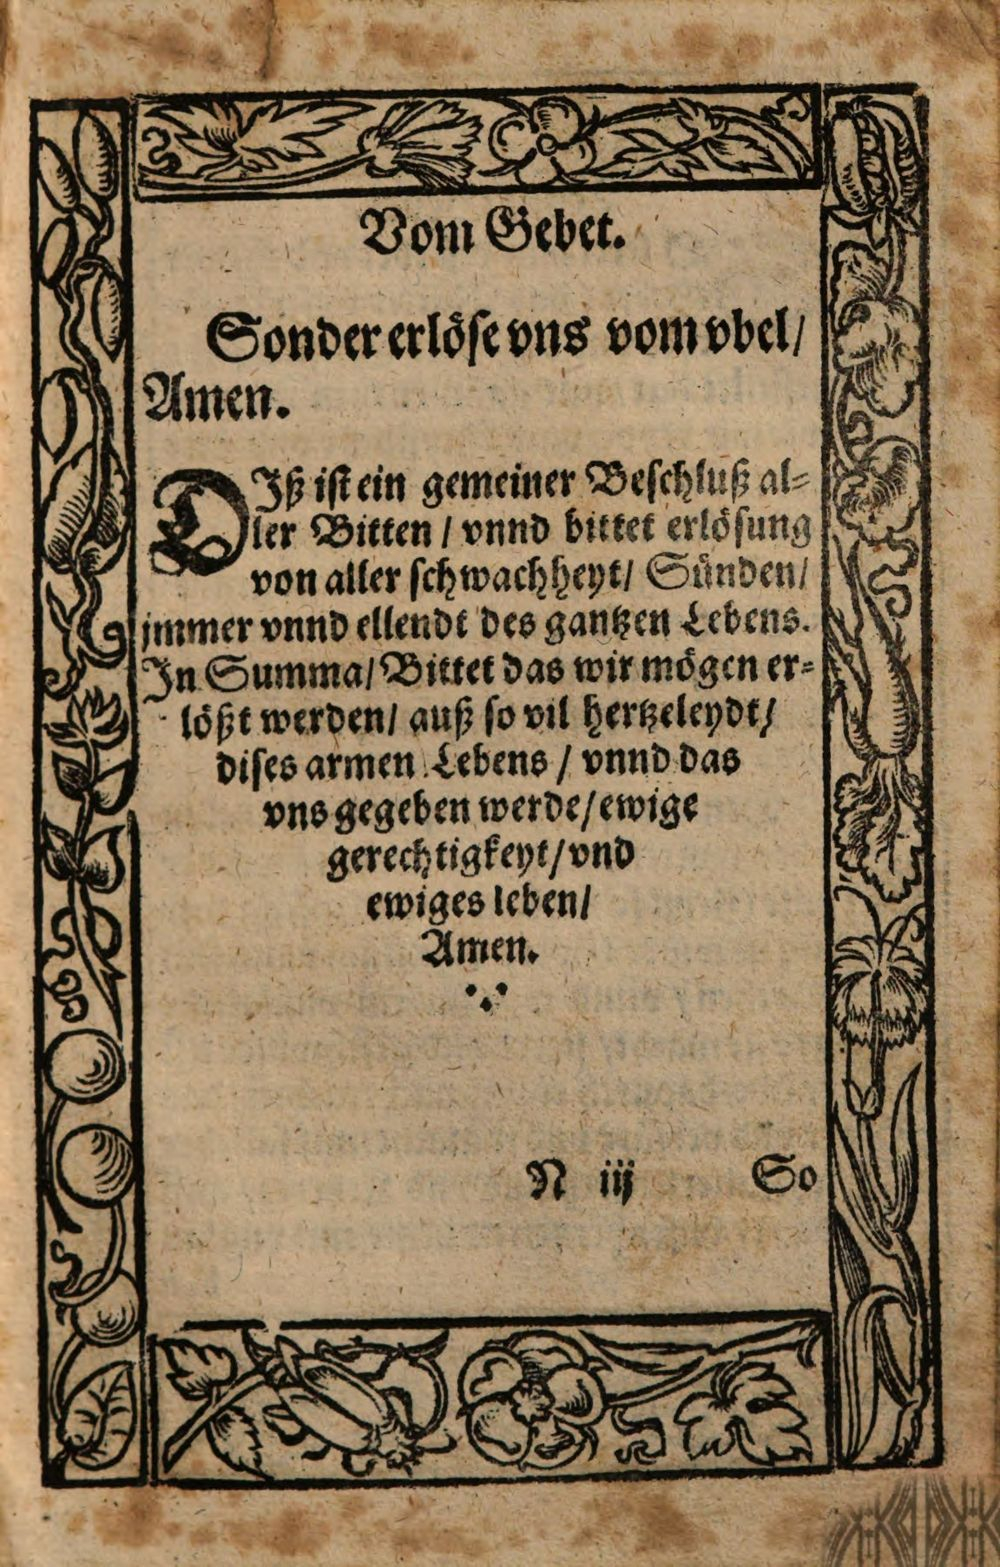 Vom Gebet.
Sonder erlöse vns vom vbel/
Amen.
DIß ist ein gemeiner Beschluß al-
ler Bitten / vnnd bittet erlösung
von aller schwachheyt/ Sünden/
jmmer vnnd ellendt des gantzen Lebens.
In Summa/ Bittet das wir mögen er-
lößt werden/ auß so vil hertzeleydt/
dises armen Lebens / vnnd das
vns gegeben werde/ ewige
gerechtigkeyt/ vnd
ewiges leben/
Amen.
N iij So